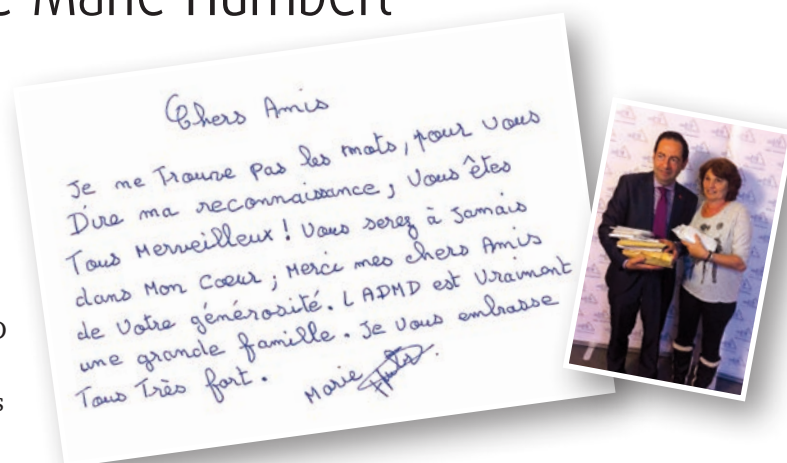 Marie Humbert
Chers Amis
Je ne Trouve pas les mots, pour vous
Dire ma reconnaissance ; Vous êtes
Tous Merveilleux ! Vous serez à Jamais
dans Mon Coeur ; Merci mes chers Amis
de Votre générosité. L ADMD est Vraiment
une grande famille. Je vous embrasse
Tous Très fort.
Marie